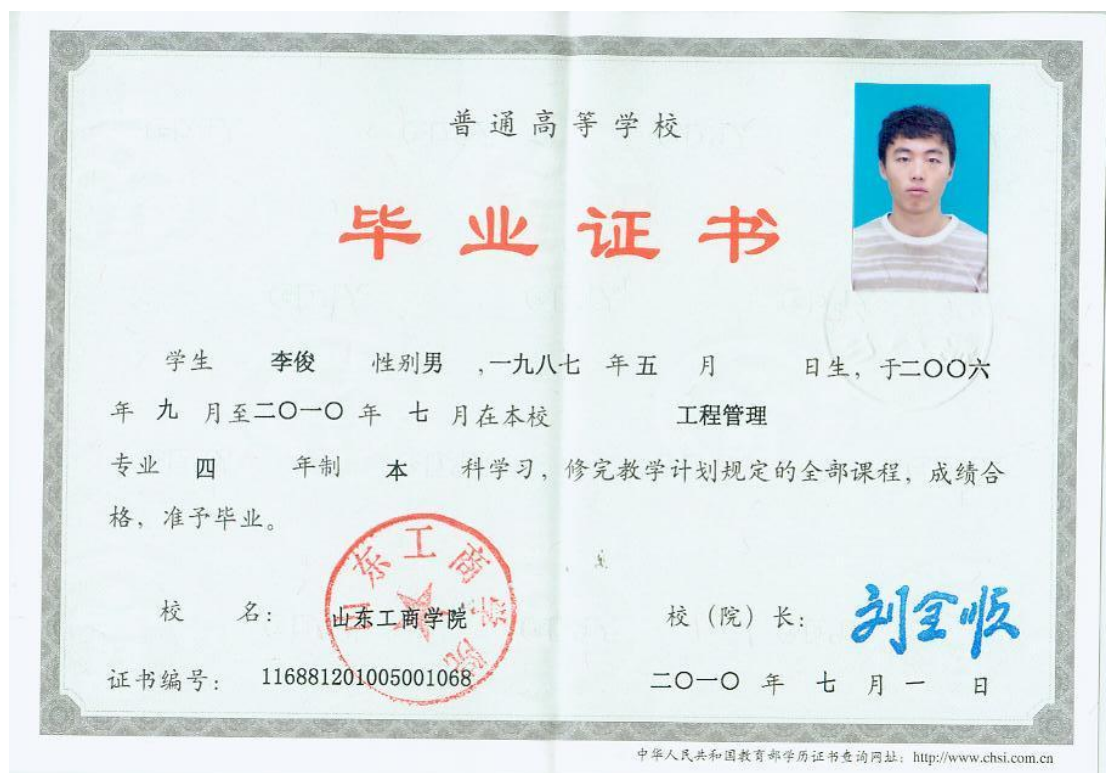 普通高等学校
毕业证书
学生 李俊 性别男 ,一九八七 年五 月 日生，于二〇〇六
年 九 月至二〇一〇 年 七 月在本校 工程管理
专业 四 年制 本 科学习，修完教学计划规定的全部课程，成绩合
格，准予毕业。
山东工商学院
校 名： 山东工商学院 校（院）长： 刘全顺
证书编号： 116881201005001068 二〇一〇 年 七 月 一 日
中华人民共和国教育部学历证书查询网址：http://www.chsi.com.cn